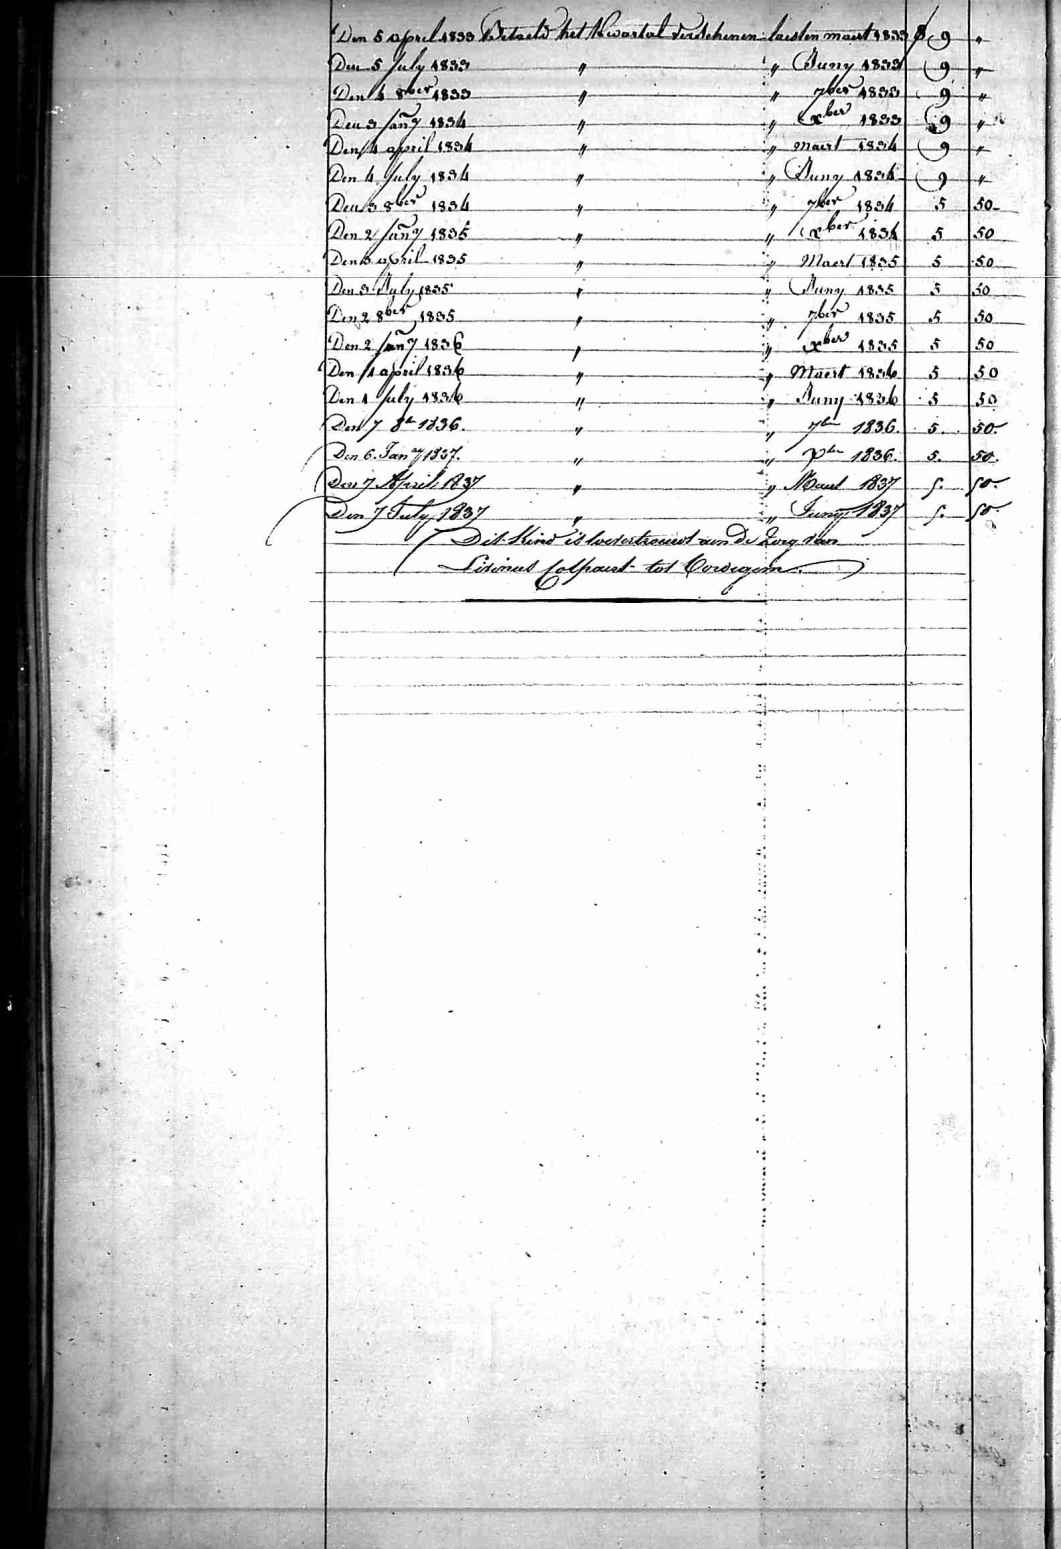 Den 5 april 1833 Betaeld het Kwartal verschenen laesten maert 1833 f 9 "
Den 5 July 1833 " " Juny 1833 9 "
Den 4 8ber 1833 " " 7ber 1833 9 "
Den 3 Jany 1834 " " xber 1833 9 "
Den 4 april 1834 " " maert 1834 9 "
Den 4 July 1834 " " Juny 1834 9 "
Den 3 8ber 1834 " " 7ber 1834 5 50
Den 2 Jany 1835 " " xber 1834 5 50
Den 3 april 1835 " " Maert 1835 5 50
Den 3 July 1835 " " Juny 1835 5 50
Den 2 8ber 1835 " " 7ber 1835 5 50
Den 2 Jany 1836 " " xber 1835 5 50
Den 1 april 1836 " " Maert 1836 5 50
Den 1 July 1836 " " Juny 1836 5 50
Den 7 8br 1836. " " 7ber 1836. 5. 50.
Den 6. Jany 1837. " " xber 1836. 5. 50.
Den 7 April 1837 " " Maert 1837 5. 50.
Den 7 July 1837 " " Juny 1837 5. 50.
Dit Kind is toevertrouwt aen de Zorg van
Livinus Colpaert tot